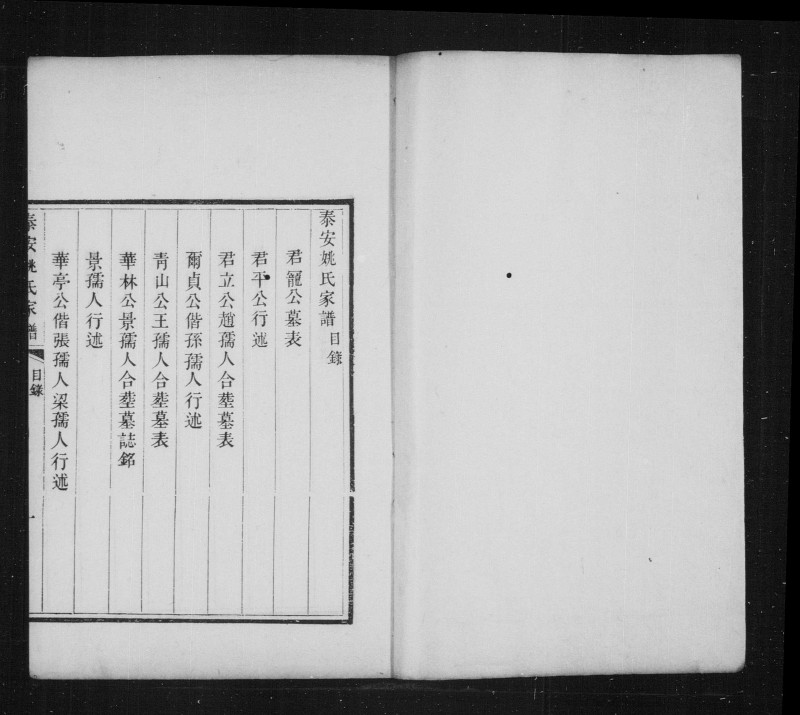 泰安姚氏家譜目錄
君龍公墓表
君平公行述
君立公趙孺人合塟墓表
爾貞公偕孫孺人行述
青山公王孺人合塟墓表
華林公景孺人合塟墓誌銘
景孺人行述
華亭公偕張孺人梁孺人行述
泰安姚氏家譜
目錄
一